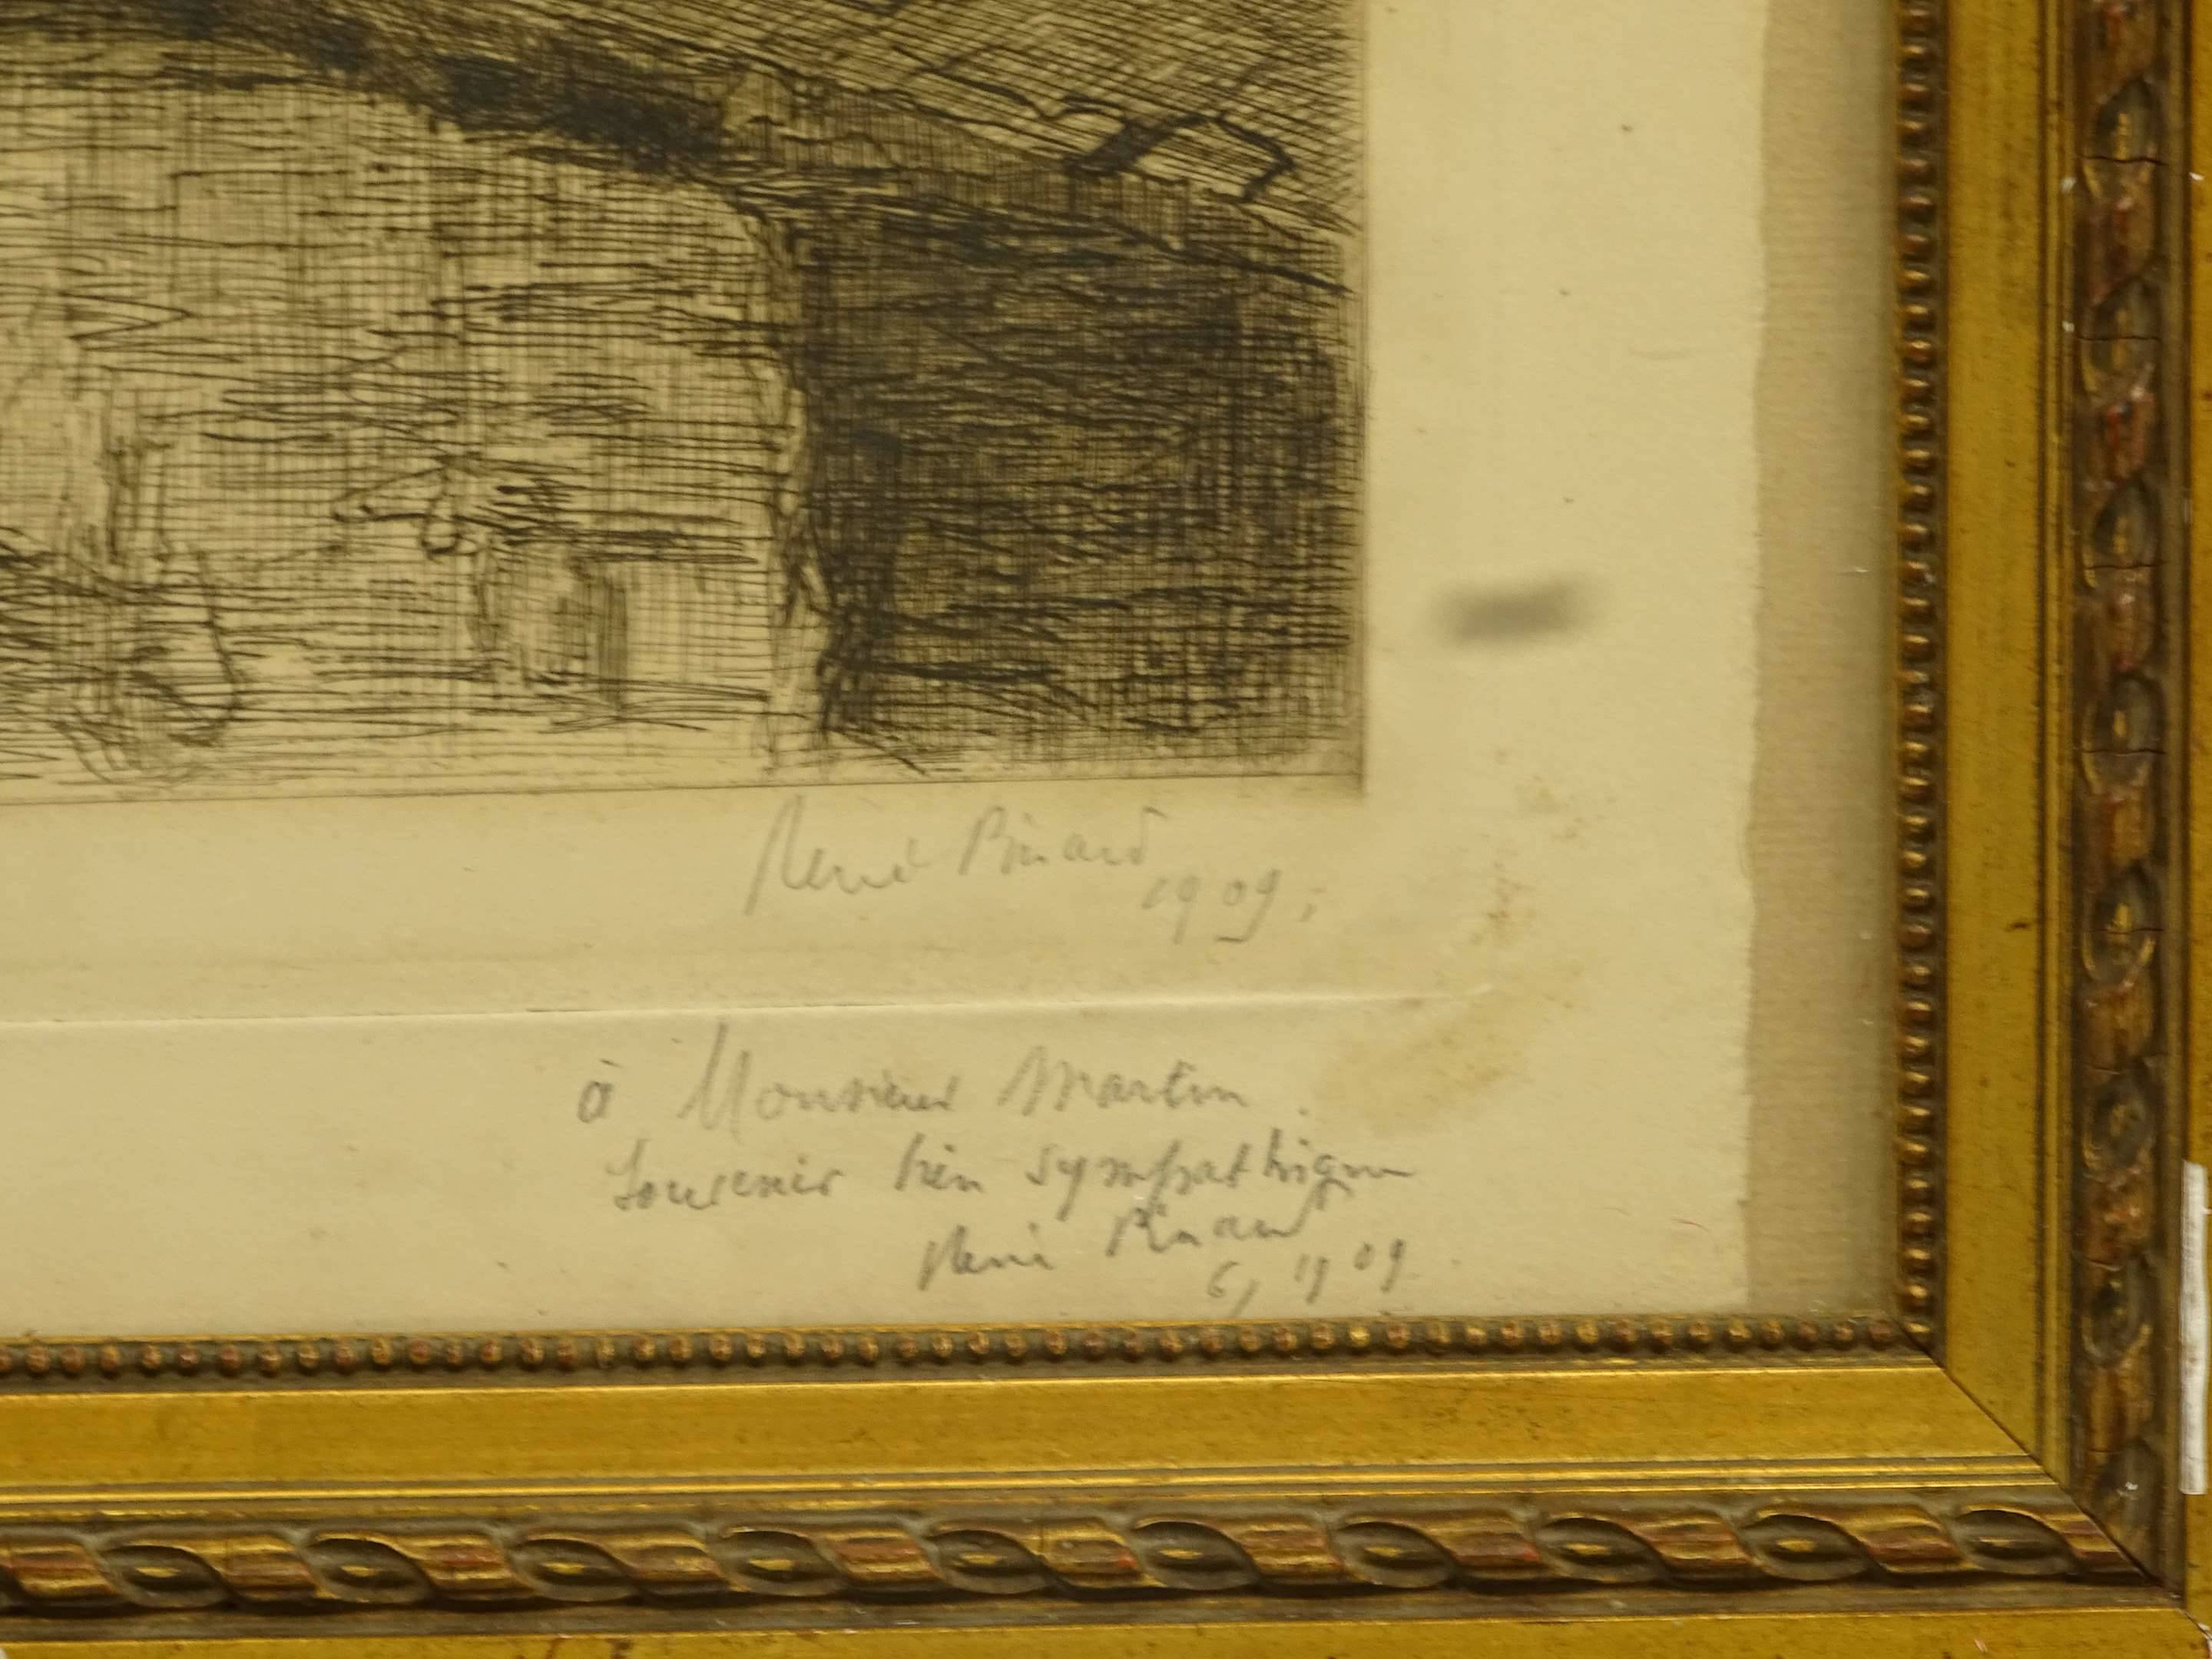 René Pinard
1909
à Monsieur Martin
Souvenir bien sympathique
René Pinard
6, 1909